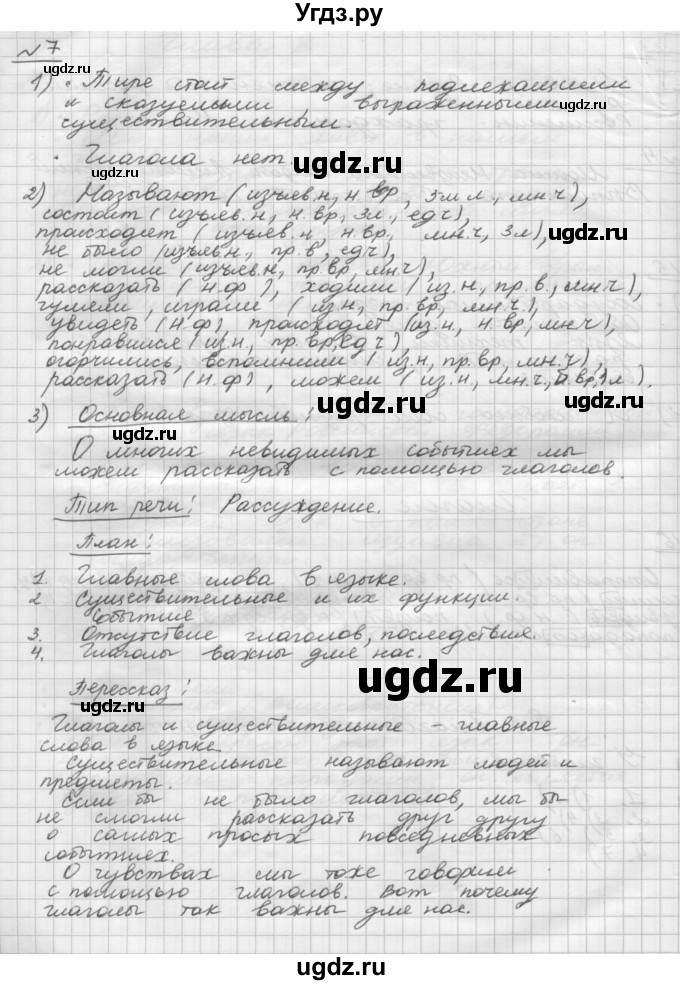 Угдз.ру
№7
ugdz.ru
1) · Тире стоит между подлежащими
и сказуемыми, выраженными
ugdz.ru
существительным.
· Глагола нет.
ugdz.ru
2) Называют (изъяв.н, н. вр, 3м л., мн.ч),
ugdz.ru
состоит (изъяв.н, н. вр, 3л., ед ч),
происходят (изъяв.н, н. вр., мн.ч, 3л),
ugdz.ru
не было (изъяв.н., пр. в, ед ч),
ugdz.ru
не могли (изъяв.н, пр. вр, мн.ч),
рассказать (н.ф), ходили (из.н, пр. в., мн.ч),
гуляли, играли (из.н, пр. вр, мн.ч.),
увидеть (н.ф), происходят (из.н, н. вр, мн ч),
ugdz.ru
понравился (из.н, пр. вр, ед ч)
огорчились, вспомнили (из.н, пр. вр, мн.ч),
ugdz.ru
рассказать (н.ф), можем (из.н, мн.ч, б. вр, 1 л).
ugdz.ru
3) Основная мысль:
ugdz.ru
О многих невидимых событиях мы
можем рассказать с помощью глаголов.
ugdz.ru
Тип речи: Рассуждение.
ugdz.ru
План:
1. Главные слова в языке.
ugdz.ru
2 Существительные и их функции.
событие
3. Отсутствие глаголов, последствия.
ugdz.ru
4. Глаголы важны для нас.
ugdz.ru
Перессказ:
ugdz.ru
Глаголы и существительные – главные
слова в языке
ugdz.ru
Существительные называют людей и
предметы.
ugdz.ru
Если бы не было глаголов, мы бы
не смогли рассказать друг другу
о самых просых повседневных
событиях.
ugdz.ru
О чувствах мы тоже говорим
с помощью глаголов. Вот почему
ugdz.ru
глаголы так важны для нас.
ugdz.ru
ugdz.ru
ugdz.ru